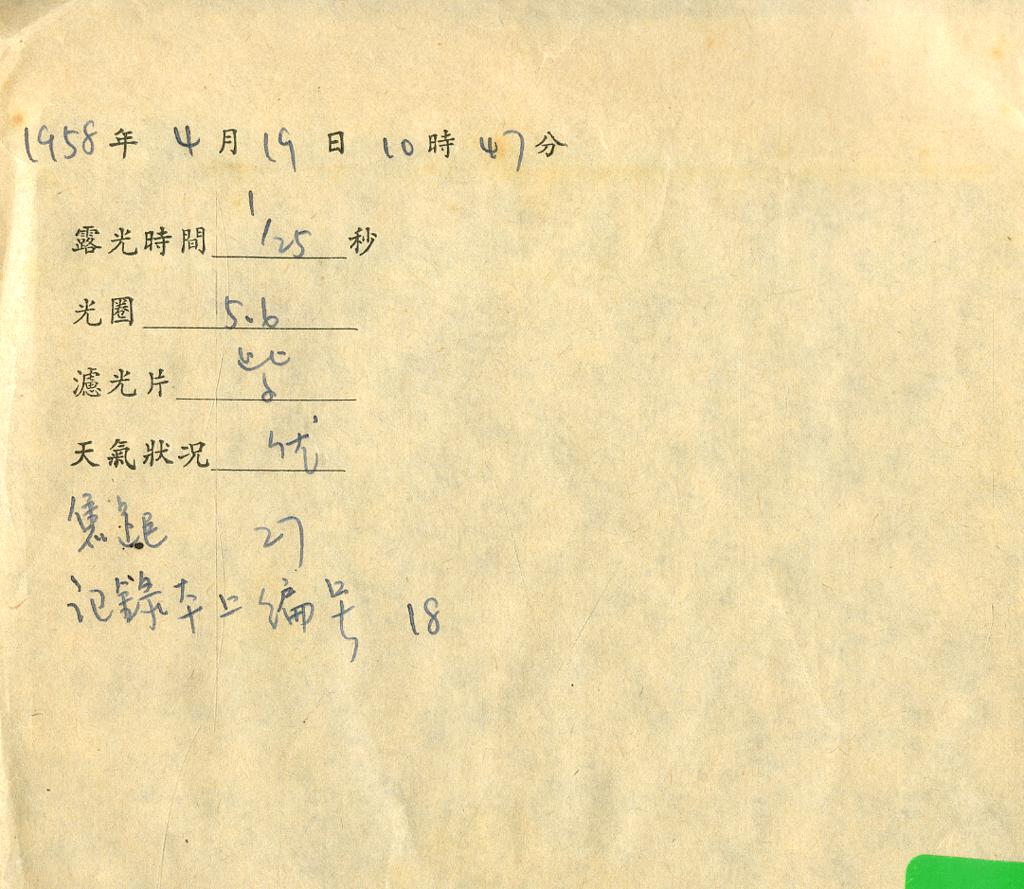 1958年 4月19日 10時47分
露光時間 1/25 秒
光圈 5.6
濾光片 紫
天氣狀况 优
焦距 27
记錄本上编号 18